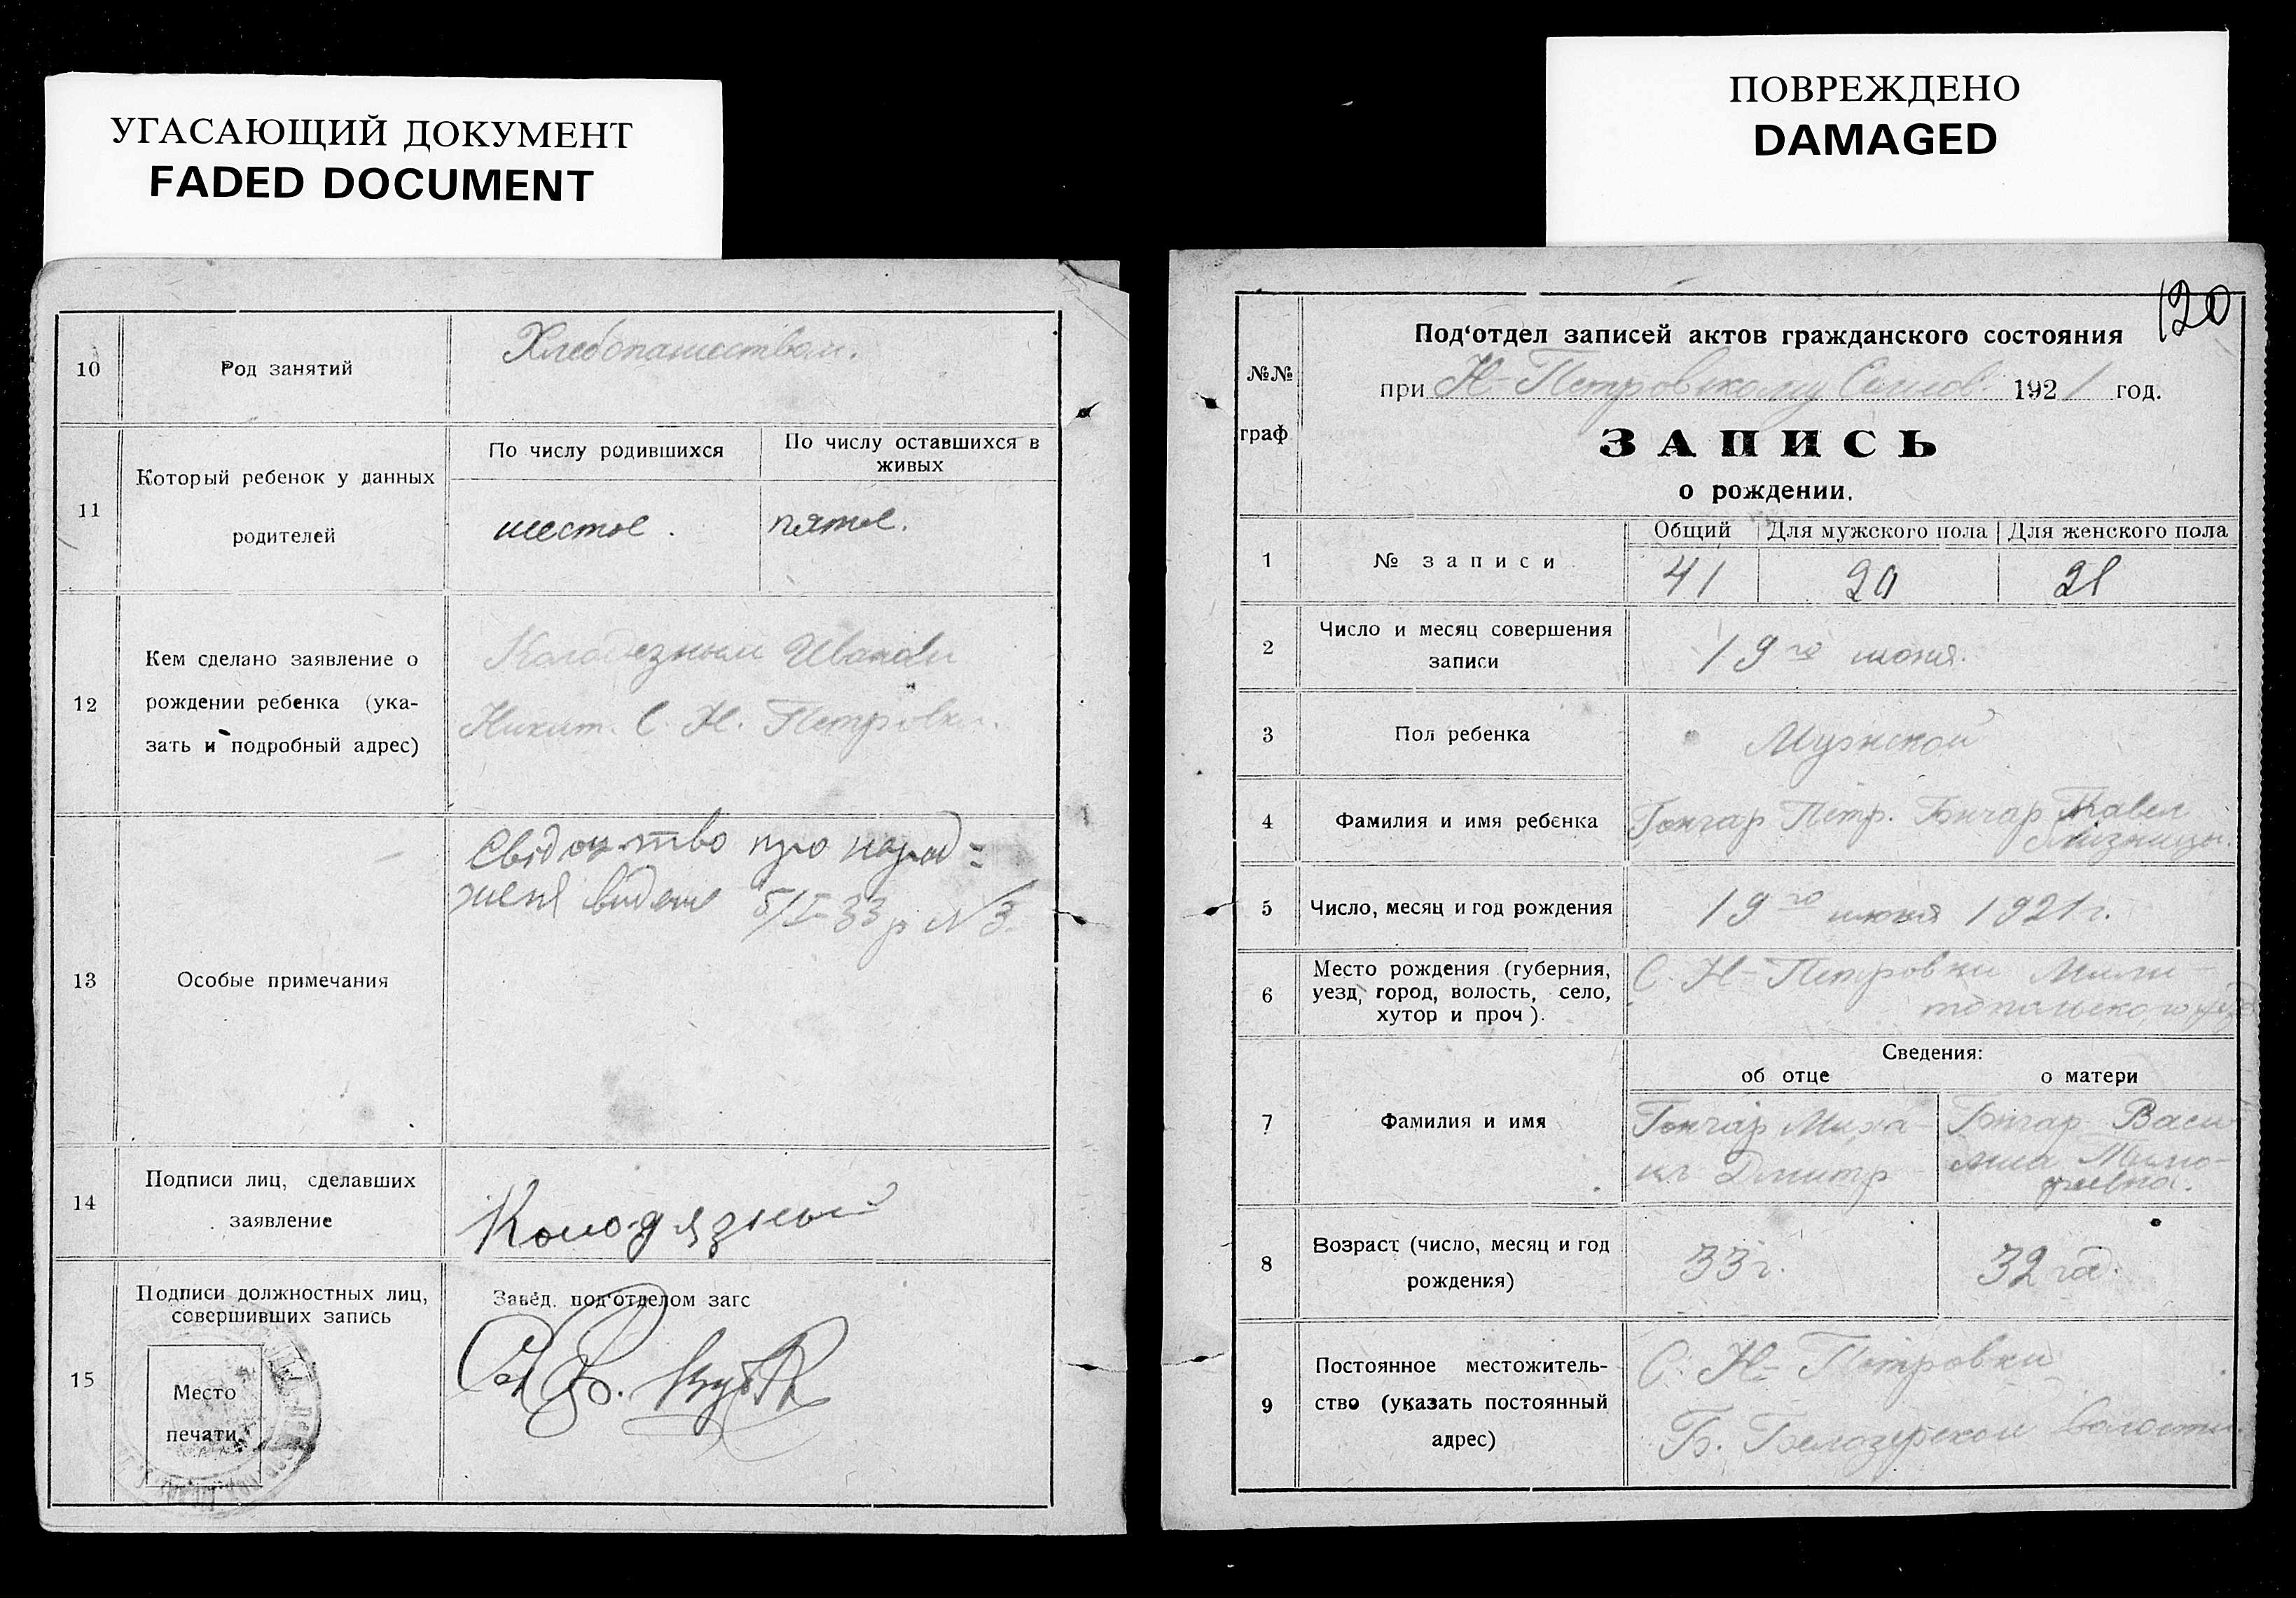 УГАСАЮЩИЙ ДОКУМЕНТ
FADED DOCUMENT
10
Род занятий
Хлебопашеством.
11
Который ребенок у данных
родителей
По числу родившихся
По числу оставшихся в
живых
шестое.
пятое.
12
Кем сделано заявление о
рождении ребенка (ука-
зать и подробный адрес)
Колодезным Иваном
Никит. С. Н. Петровки.
13
Особые примечания
Свідоцтво про народ=
женя видане 5/I-33 р N 3.
14
Подписи лиц, сделавших
заявление
Колодязный
15
Подписи должностных лиц,
совершивших запись
Место
печати
Завед. под'отделом загс
ПОВРЕЖДЕНО
DAMAGED
120
№№
граф
Под'отдел записей актов гражданского состояния
при Н-Петровскому 1921 год.
ЗАПИСЬ
о рождении.
1
№ записи
Общий
Для мужского пола
Для женского пола
41
20
21
2
Число и месяц совершения
записи
19го июня.
3
Пол ребенка
Мужской
4
Фамилия и имя ребенка
Гончар Петр. Гончар Павел
близницы.
5
Число, месяц и год рождения
19го июня 1921 г.
6
Место рождения (губерния,
уезд, город, волость, село,
хутор и проч).
С. Н-Петровки Мели
топольского уезд
Сведения:
об отце
о матери
7
Фамилия и имя
Гончар Миха-
ил Дмитр
Гончар Васи
лиса Тимо-
феевна.
8
Возраст (число, месяц и год
рождения)
33 г.
32 год.
9
Постоянное местожитель-
ство (указать постоянный
адрес)
С. Н-Петровки
Б. Белозерской волости.